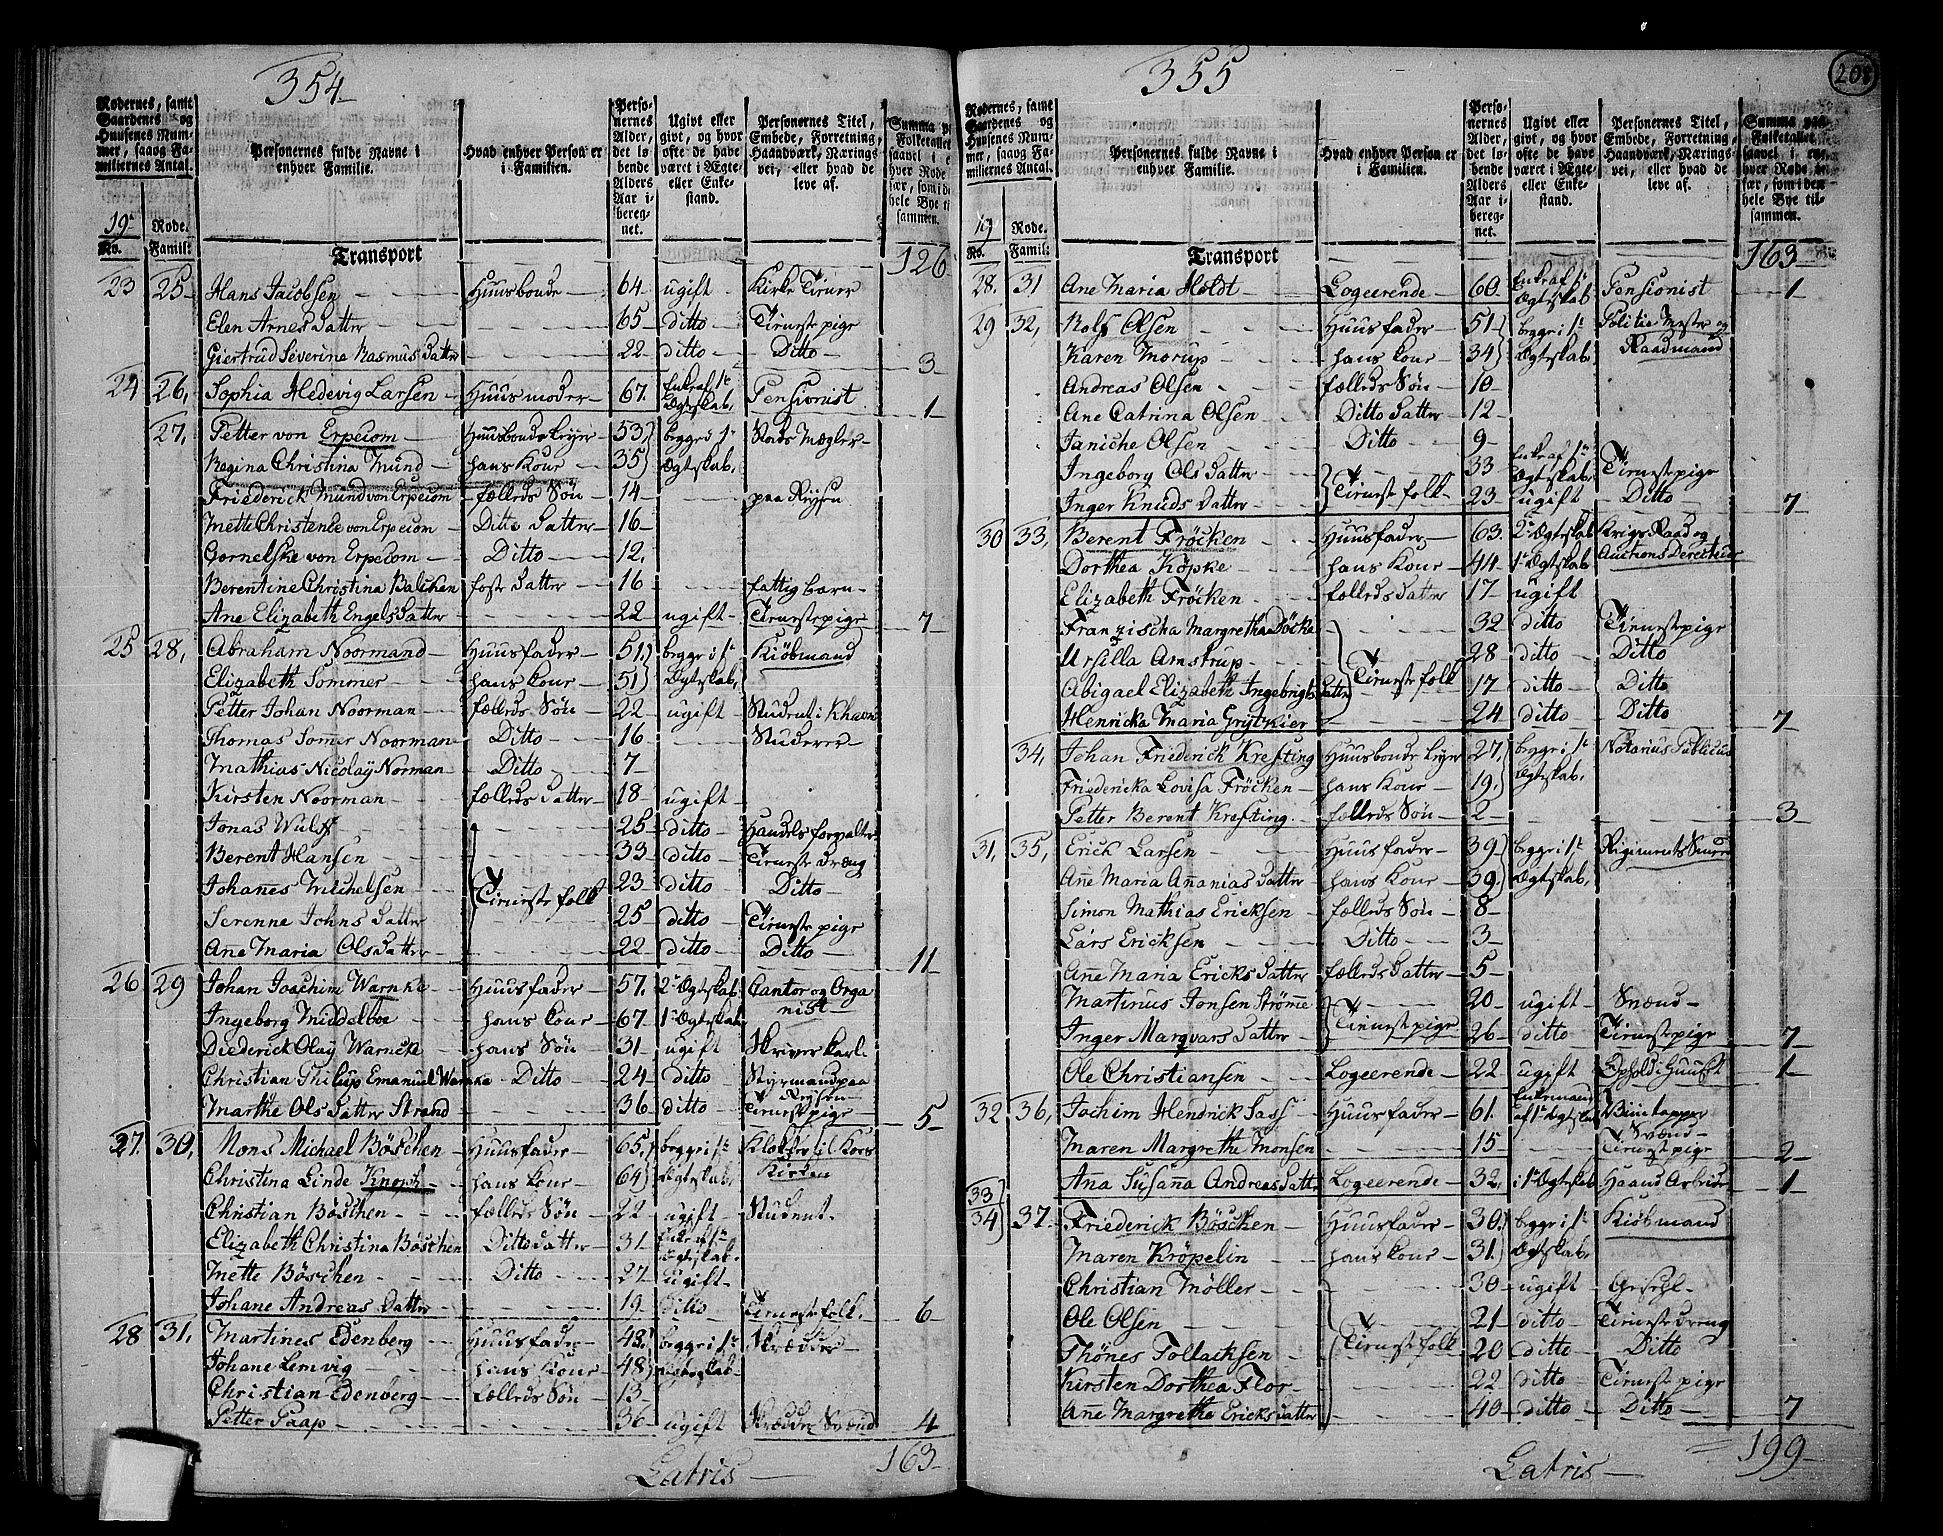 354
Rodernes, samt Gaardenes og Huusenes Nummer, saavg Familiernes Antal.
Personernes fulde Navne i enhver Familie.
Hvad enhver Person er i Familien.
Personernes Alder, det lobende Alders Aar iberegnet.
Ugivt eller givt, og hvor ofte de have været i Ægte- eller Enkestand.
Personernes Titel, Embede, Forretning, Haandværk, Næringsvei, eller hvad de leve af.
19de Rode.
No. Famil:
Transport 126
23 25 Hans Jacobsen Huusbonde 64 ugift Kirke Tiener
Elen Arnes Datter 65 ditto Tieneste pige
Giertrud Severine Rasmus Datter 22 ditto Ditto 3
24 26, Sophia Hedevig Larsen Huusmoder 67. Enke af 1te Ægteskab, Pensionist 1
27, Petter von Erpecom 53, begge i 1te Rads Mægler
Regina Christina Mund hans Kone 35 Ægtskab,
Friederick Mund von Erpecom fælleds Søn 14 paa Reysen
Mette Christenle von Erpecom Ditto Datter 16
Cornelske von Erpecom Ditto 12.
Berentine Christina Balchen foster Datter 16 fattig barn
Ane Elizabeth Engels Datter 22 ugift Tienestepige 7
25 28, Abraham Noormand Huusfader 51, begge i 1te Kiøbmand
Elizabeth Sommer hans Kone 51 Ægtskab,
Petter Johan Noorman fælleds Søn 22 ugift Student i Khavn
Thomas Somer Noorman Ditto 16 Studerer
Mathias Nicolaÿ Norman Ditto 7
Kirsten Noorman fælleds Datter 18 ugift
Jonas Wulff 25 ditto Handels forvalter
Berent Hansen 33 ditto Tieneste dreng
Johannes Michelsen Tieneste folk 23 ditto Ditto
Serenne Johns Datter 25 ditto Tieneste pige
Ane Maria Ols Datter 22 ditto Ditto 11
26 29 Johan Joachim Warnke Huusfader 57. 2de Ægtskab Cantor og Orga
Ingeborg Middelboe hans Kone 67. 1te Ægtskab nist
Diederick Olaÿ Warncke hans Søn 31 ugift Skriver karl.
Christian Philup Emanuel Warnke Ditto 24 ditto Styrmand paa Reysen
Marthe Ols Datter Strand 36 ditto Tienestepige 5
27. 30, Mons Michael Böschen Huusfader 65, begge i 1te Klokker til Kors
Christina Linde Knoph hans Kone 64 Ægtskab, Kirken
Christian Böschen fælleds Søn 22 ugift Student.
Elizabeth Christina Böschen Ditto datter 31 Enke af 1te Ægtskab
Mette Böschen Ditto 27 ugift
Johane Andreas Datter 19 Ditto Tieneste folk 6
28 31, Martines Edenberg Huusfader 48, begge i 1te Skrædder
Johane Lemvig hans Kone 48 Ægteskab
Christian Edenberg fælleds Søn 13
Petter Paap 36 ugift Skrædder Svend 4
Latris 163
355
208
Rodernes, samt Gaardenes og Huusenes Nummer, saavg Familiernes Antal.
Personernes fulde Navne i enhver Familie.
Hvad enhver Person er i Familien.
Personernes Alder, det lobende Alders Aar iberegnet.
Ugivt eller givt, og hvor ofte de have været i Ægte- eller Enkestand.
Personernes Titel, Embede, Forretning, Haandværk, Næringsvei, eller hvad de leve af.
Summa paa Folketallet saavel i enhver Rode især, som i den hele Bye tilsammen.
19 Rode.
No. Famil:
Transport 163
28. 31 Ane Maria Holdt Logeerende 60 Enke af 1te Ægtskab Pensionist 1
29 32, Rolf Olsen Huusfader 51 begge i 1te Politie Mester og
Karen Morup hans Kone 34 Ægtskab, Raadmand
Andreas Olsen fælleds Søn 10
Ane Catrina Olsen Ditto Datter 12
Janiche Olsen Ditto 9
Ingeborg Ols Datter 33 Enke af 1te Ægtskab Tieneste pige
Inger Knuds Datter Tieneste folk 23 ugift Ditto 7
30 33, Berent Fröcken Huusfader 63. 2de Ægtskab Krigs Raad og
Dorthea Köpke hans Kone 44 1te Ægtskab Auctions Derecteur
Elizabeth Fröcken fælleds Datter 17 ugift
Franzischa Margretha Döcke 32 ditto Tieneste pige
Ursilla Amstrup 28 ditto Ditto
Abigael Elizabeth Ingebrigts Datter Tieneste folk 17 ditto Ditto
Henricka Maria Grÿtzkier 24 ditto Ditto 7
34, Johan Friederick Krefting Huusbonde 27, begge i 1te Notarius Publicus
Friedericka Lovisa Fröcken hans Kone 19. Ægtskab,
Petter Berent Krefting. fælleds Søn 2 3
31, 35, Erich Larsen Huusfader 39 begge i 1te
Ane Maria Ananias Datter hans Kone 39. Ægtskab,
Simon Mathias Ericksen fælleds Søn 8
Lars Ericksen Ditto 3
Ane Maria Ericks Datter fælleds Datter 5
Martinus Jonsen Strömme 20 ugift Svend
Inger Marqvars Datter Tieneste pige 26 ditto Tieneste pige 7
Ole Christiansen Logeerende 22 ugift 1
32 36, Jochim Hendrick Sass Huusfader 61. Enkemand af 1te Ægtskab Viintapper
Maren Margrethe Monsen 15 Tieneste pige 2
Ana Susana Andreas Datter Logeerende 32. i 1te Ægtskab Haand Arbeide 1
33
34 37. Friederick Böschen Huusfader 30. begge i 1te Kiøbmand
Maren Kröpelin hans Kone 31. Ægtskab,
Christian Möller 30 ugift Gesell
Ole Olsen 21 ditto Tieneste dreng
Thönes Tollacksen Tieneste folk 20 ditto Ditto
Kirsten Dorthea Flor 22 ditto Tieneste pige
Ane Margrethe Ericks Datter 40 ditto Ditto 7
Latris 199